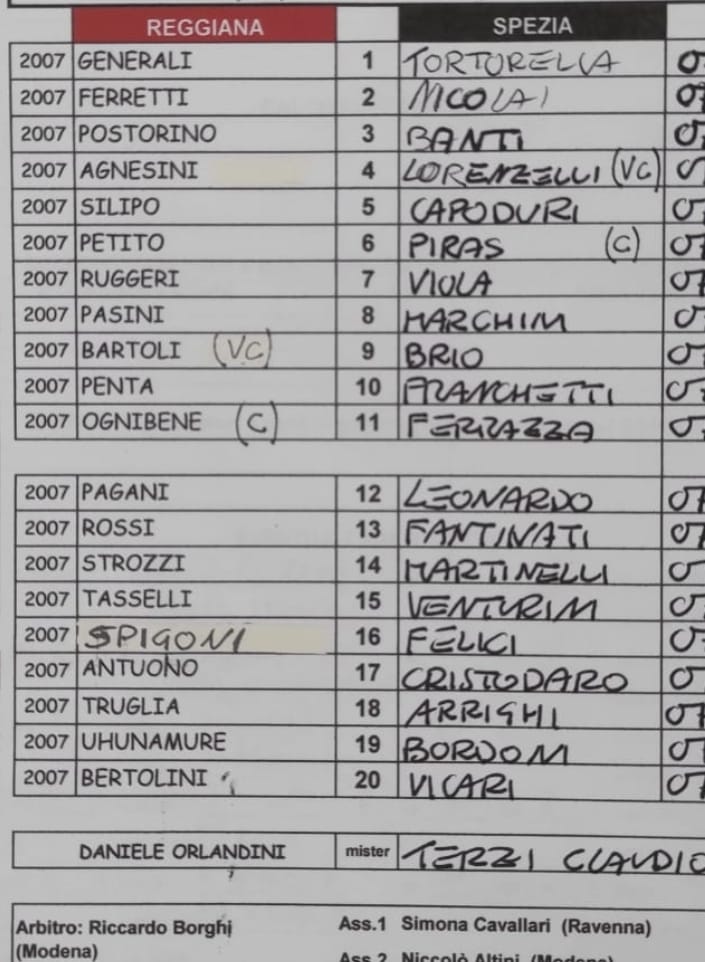 REGGIANA SPEZIA
2007 GENERALI 1 TORTORELLA 07
2007 FERRETTI 2 NICOLAI 07
2007 POSTORINO 3 BANTI 07
2007 AGNESINI 4 LORENZELLI (VC)
2007 SILIPO 5 CAPODURI 07
2007 PETITO 6 PIRAS (C) 07
2007 RUGGERI 7 VIOLA 07
2007 PASINI 8 MARCHINI 07
2007 BARTOLI (VC) 9 BRIO 07
2007 PENTA 10 FRANCHETTI 07
2007 OGNIBENE (C) 11 FERRAZZA 07
2007 PAGANI 12 LEONARDO 07
2007 ROSSI 13 FANTINATI 07
2007 STROZZI 14 MARTINELLI 07
2007 TASSELLI 15 VENTURINI 07
2007 SPIGONI 16 FELICI 07
2007 ANTUONO 17 CRISTODARO 07
2007 TRUGLIA 18 ARRIGHI 07
2007 UHUNAMURE 19 BORDONI 07
2007 BERTOLINI 20 VICARI 07
DANIELE ORLANDINI mister TERZI CLAUDIO
Arbitro: Riccardo Borghi Ass.1 Simona Cavallari (Ravenna)
(Modena) Ass.2 Niccolò Altini (Modena)